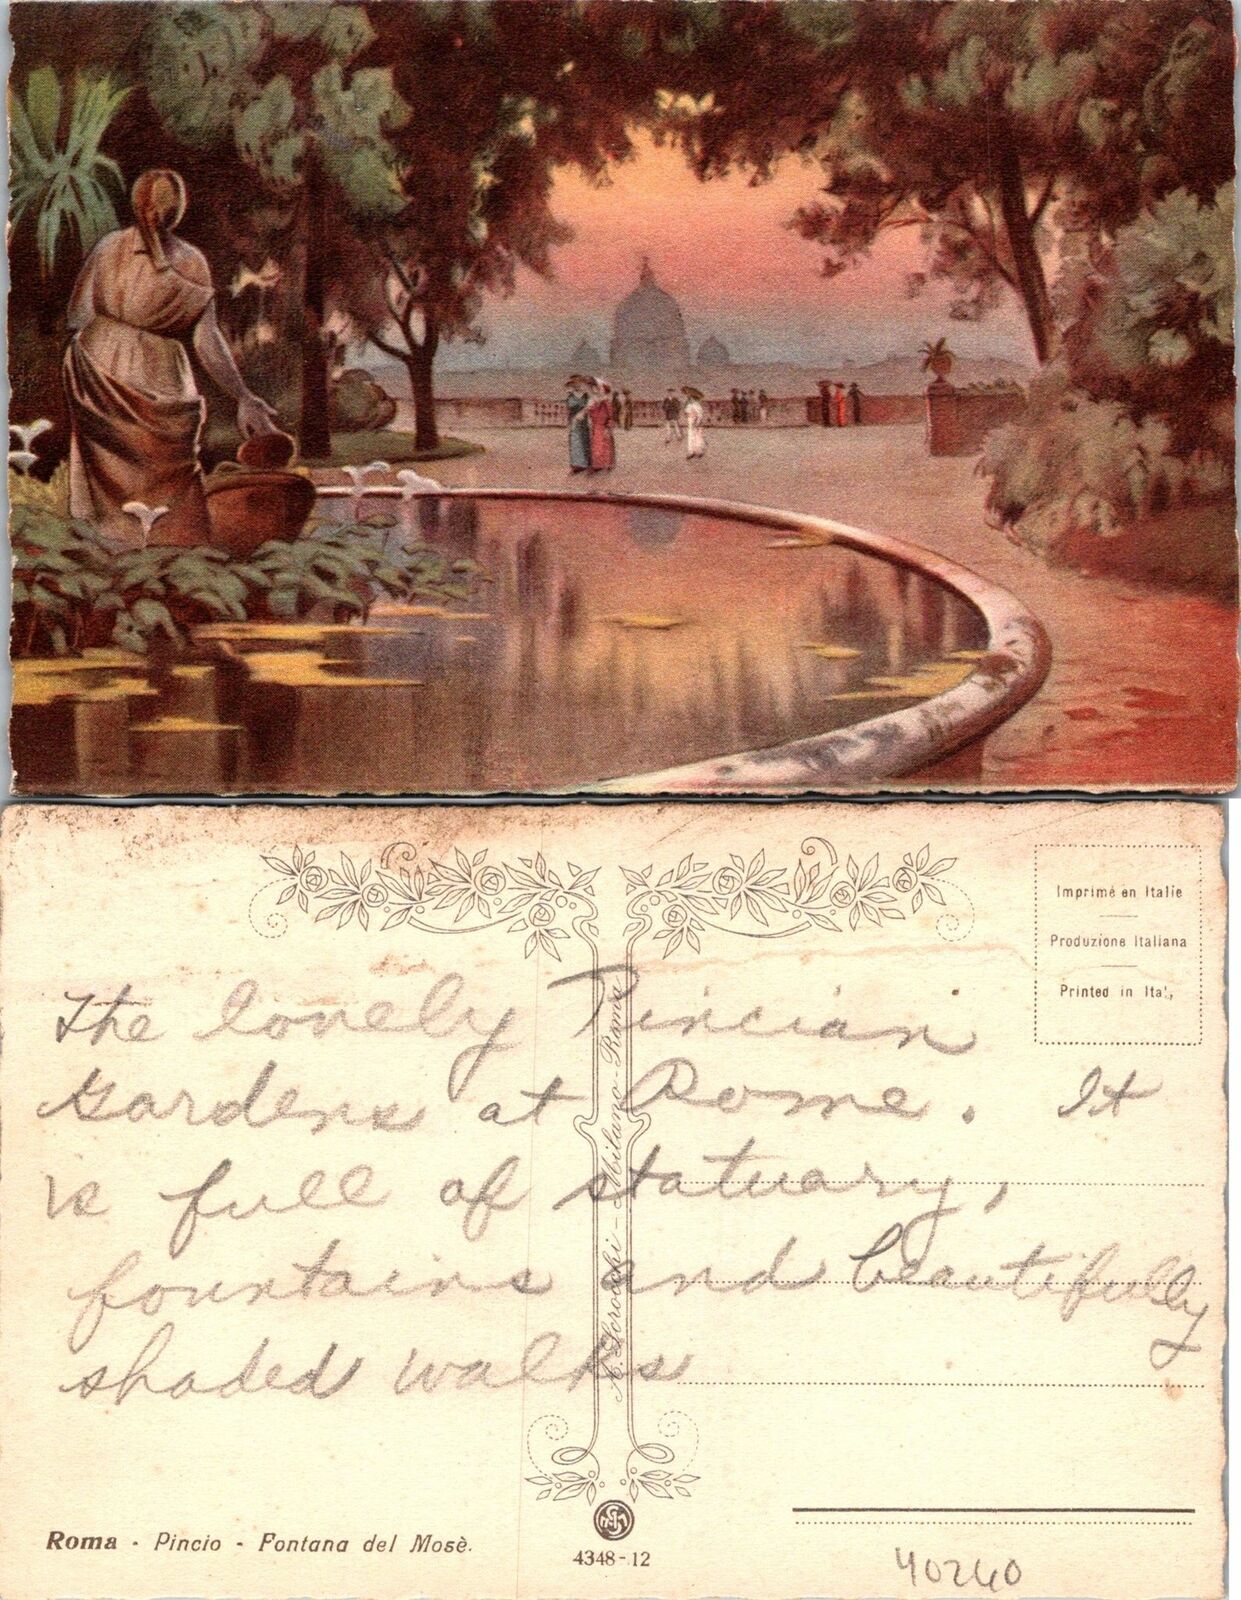 Imprimé en Italie
Produzione Italiana
Printed in Ita',
The lovely Pincian
Gardens at Rome. It
is full of statuary,
fountains and beautifully
shaded walks
A. Scrocchi - Milano - Roma
Roma - Pincio - Fontana del Mosè.
4348-12
40260